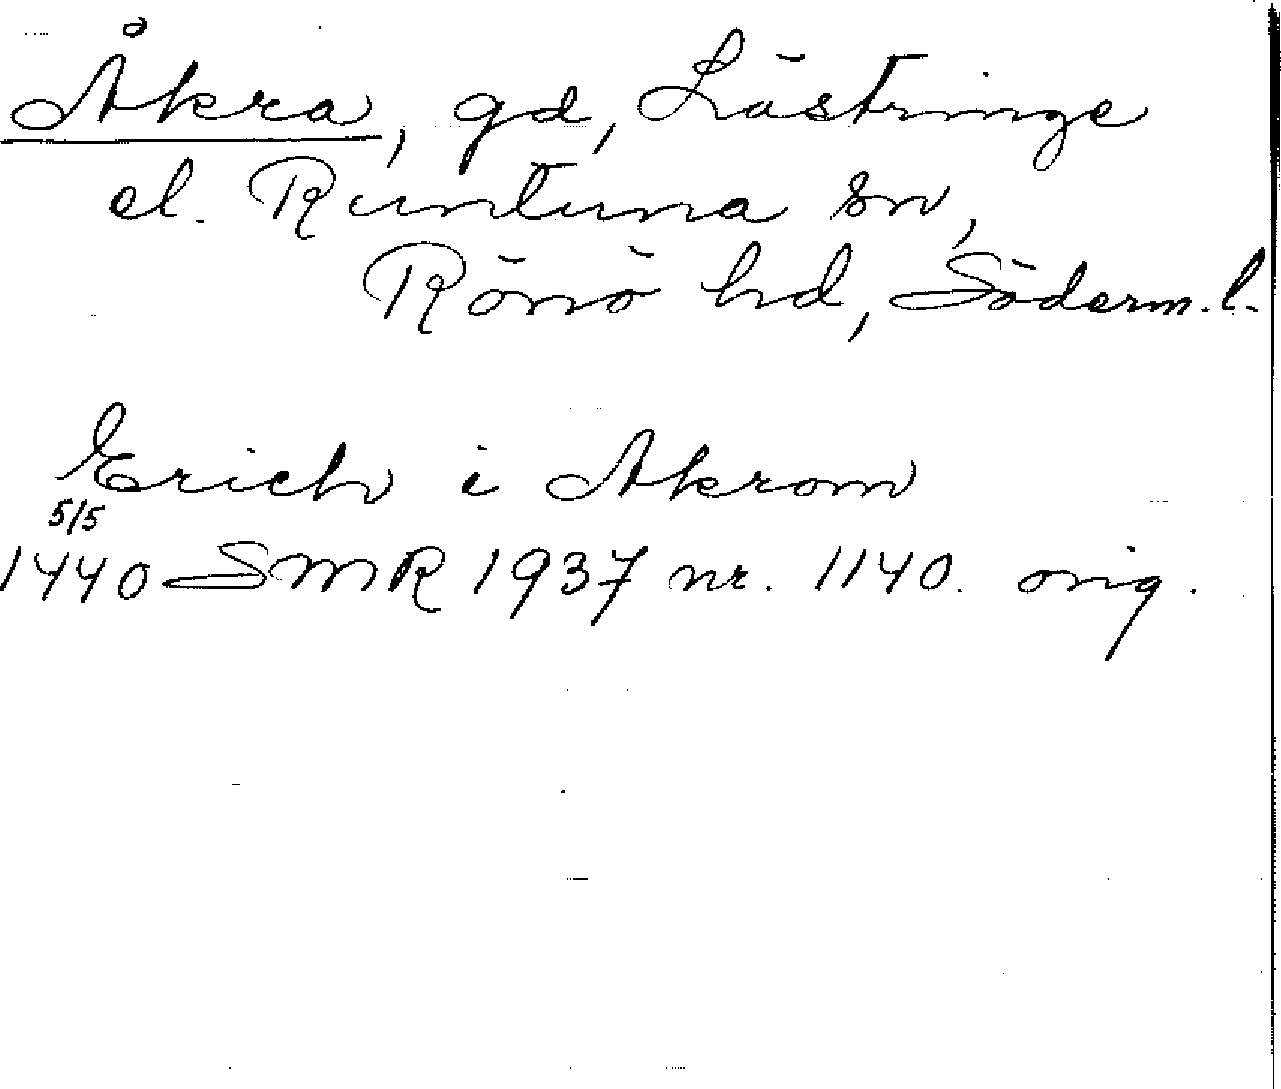 Åkra, gd, Lästringe
el. Runtuna sn,
Rönö hd, Söderm. l.
Erich i Akrom
5/5
1440 SMR 1937 nr. 1140. orig.